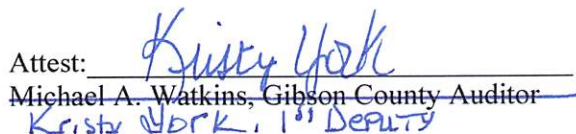 Attest: Kristy York
Michael A. Watkins, Gibson County Auditor
Kristy York, 1st Deputy